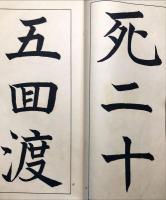 死二十
五回渡